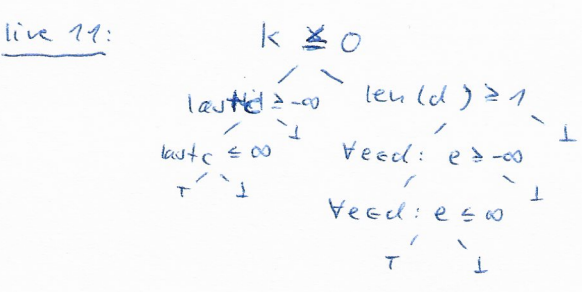 line 11:
k ≤ 0
lastc ≥ -∞
len(d) ≥ 1
⊥
⊥
lastc ≤ ∞
∀e∈d: e ≥ -∞
⊤ ⊥
⊥
∀e∈d: e ≤ ∞
⊤ ⊥